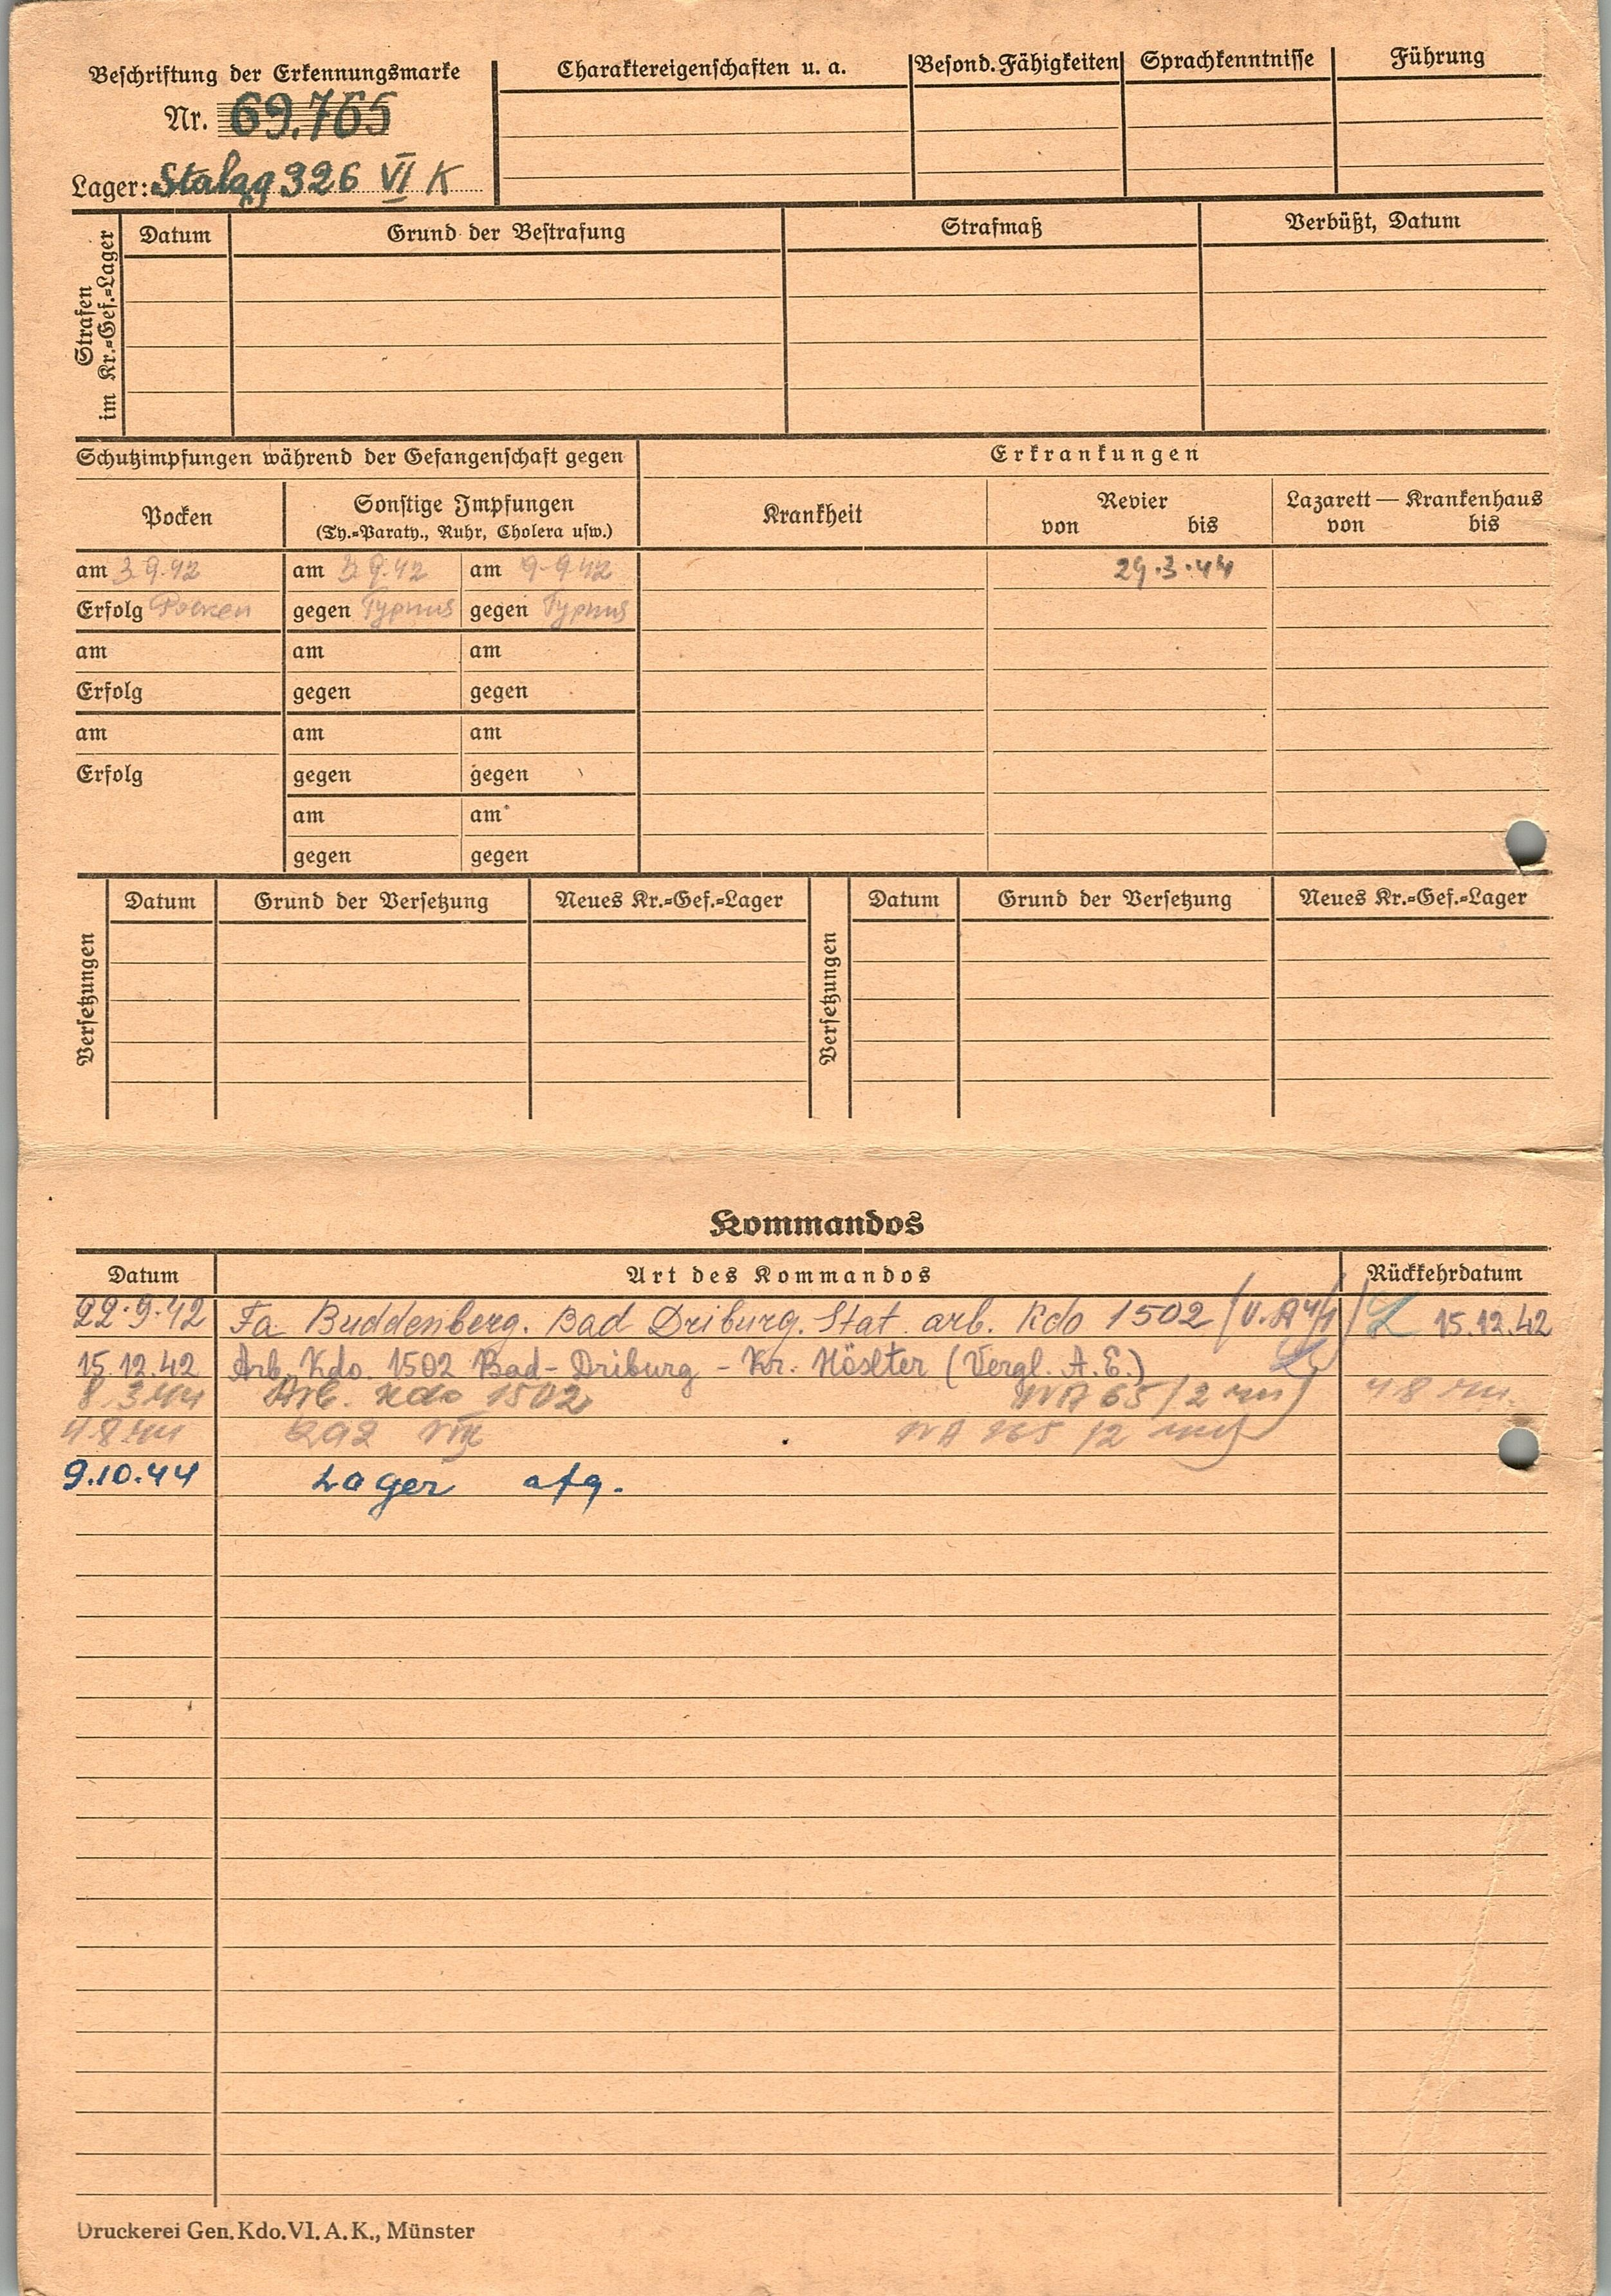 Beschriftung der Erkennungsmarke
Nr. 69.765
Lager: Stalag 326 VI K
Charaktereigenschaften u. a. Besond. Fähigkeiten Sprachkenntnisse Führung
Strafen im Kr.=Gef.=Lager
Datum Grund der Bestrafung Strafmaß Verbüßt, Datum
Schutzimpfungen während der Gefangenschaft gegen
Erkrankungen
Pocken Sonstige Impfungen
(Ty.=Paraty., Ruhr, Cholera usw.)
Krankheit Revier Lazarett — Krankenhaus
von bis von bis
am 3.9.42 am 3.9.42 am 9.9.42 29.3.44
Erfolg Pocken gegen Typhus gegen Typhus
am am am
Erfolg gegen gegen
am am am
Erfolg gegen gegen
am am
gegen gegen
Versetzungen
Datum Grund der Versetzung Neues Kr.=Gef.=Lager
Versetzungen
Datum Grund der Versetzung Neues Kr.=Gef.=Lager
Kommandos
Datum Art des Kommandos Rückkehrdatum
22.9.42 Fa Buddenberg. Bad Driburg. Stat. arb. Kdo 1502 15.12.42
15.12.42 Arb. Kdo. 1502 Bad-Driburg - Kr. Höxter (Vergl. A.E.)
8.3.44 Arb. Kdo 1502
4.8.44 292
9.10.44 Lager
Druckerei Gen. Kdo. VI. A. K., Münster